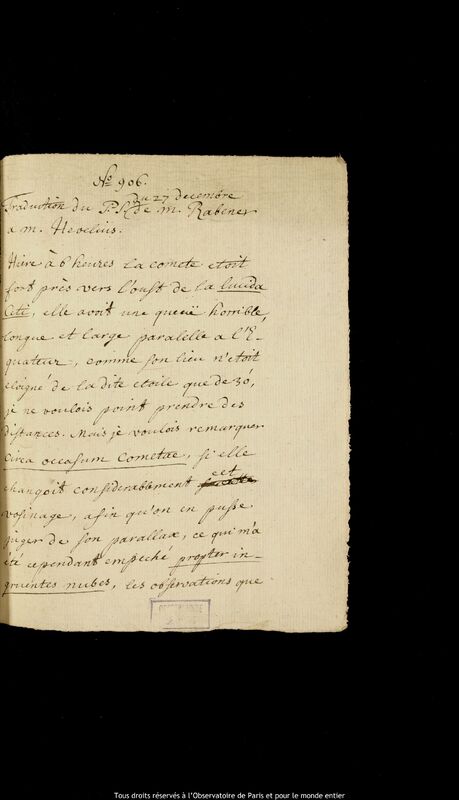 No 906.
du 27 decembre
Traduction du P. S. de m. Rabener
a m. Hevelius.
Hiere à 6 heures la comete etoit
fort près vers l'oust de la lucida
Ceti, elle avoit une queuë horrible,
longue et large paralelle a l'E-
quateur, comme son lieu n'etoit
eloigné de la dite etoile que de 30',
je ne voulois point prendre des
distances. Mais je voulois remarquer
circa occasum Cometae, si elle
changoit considerablement cet
vosinage, afin qu'on en pusse
juger de son parallax, ce qui m'a
été cependant empeché propter in-
gruentes nubes, les observations que
Tous droits réservés à l'Observatoire de Paris et pour le monde entier